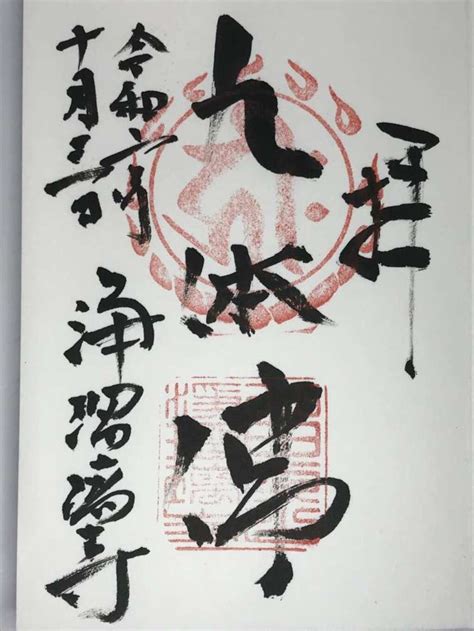 拝
九体佛
令和六年
十月三日
浄瑠璃寺